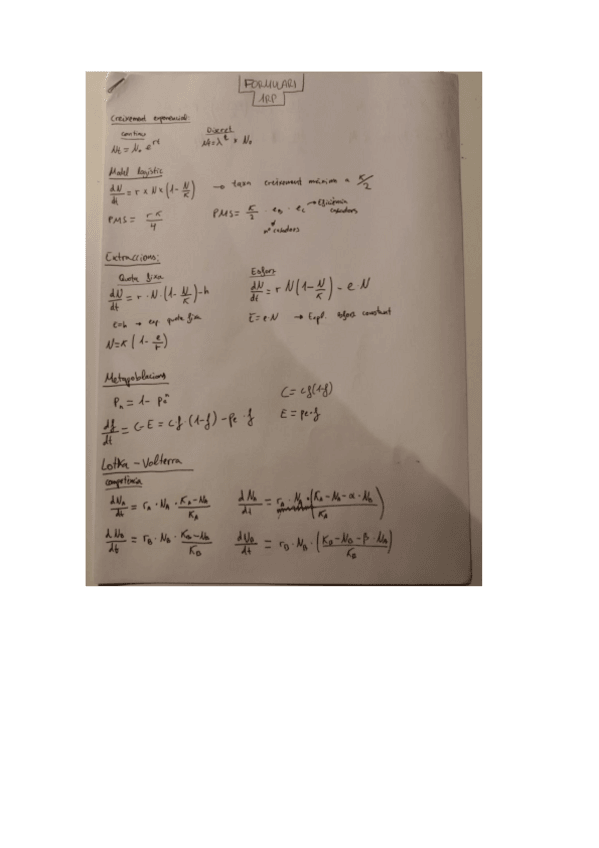 FORMULARI
1RP
Creixement exponencial:
continu
Discret
Nt = N₀ e^rt
Nt = λ^t × N₀
Model logístic
dN/dt = r × N × (1 - N/K) → taxa creixement màxima = K/2
PMS = r·K/4
PMS = K/2 · e₀ · e_c → Eficiència caçadors
nº caçadors
Extraccions:
Quota fixa
Esforç
dN/dt = r · N · (1 - N/K) - h
dN/dt = r N (1 - N/K) - e N
E=h → exp. quota fixa
E = e·N → Expl. esforç constant
N = K (1 - e/r)
Metapoblacions
Pₙ = 1 - pₑⁿ
C = c f (1-f)
df/dt = C - E = c f · (1-f) - pe · f
E = pe · f
Lotka - Volterra
competència
dN_A/dt = r_A · N_A · (K_A - N_A)/K_A
dN_A/dt = r_A · N_A · ((K_A - N_A - α · N_B)/K_A)
dN_B/dt = r_B · N_B · (K_B - N_B)/K_B
dN_B/dt = r_B · N_B · ((K_B - N_B - β · N_A)/K_B)